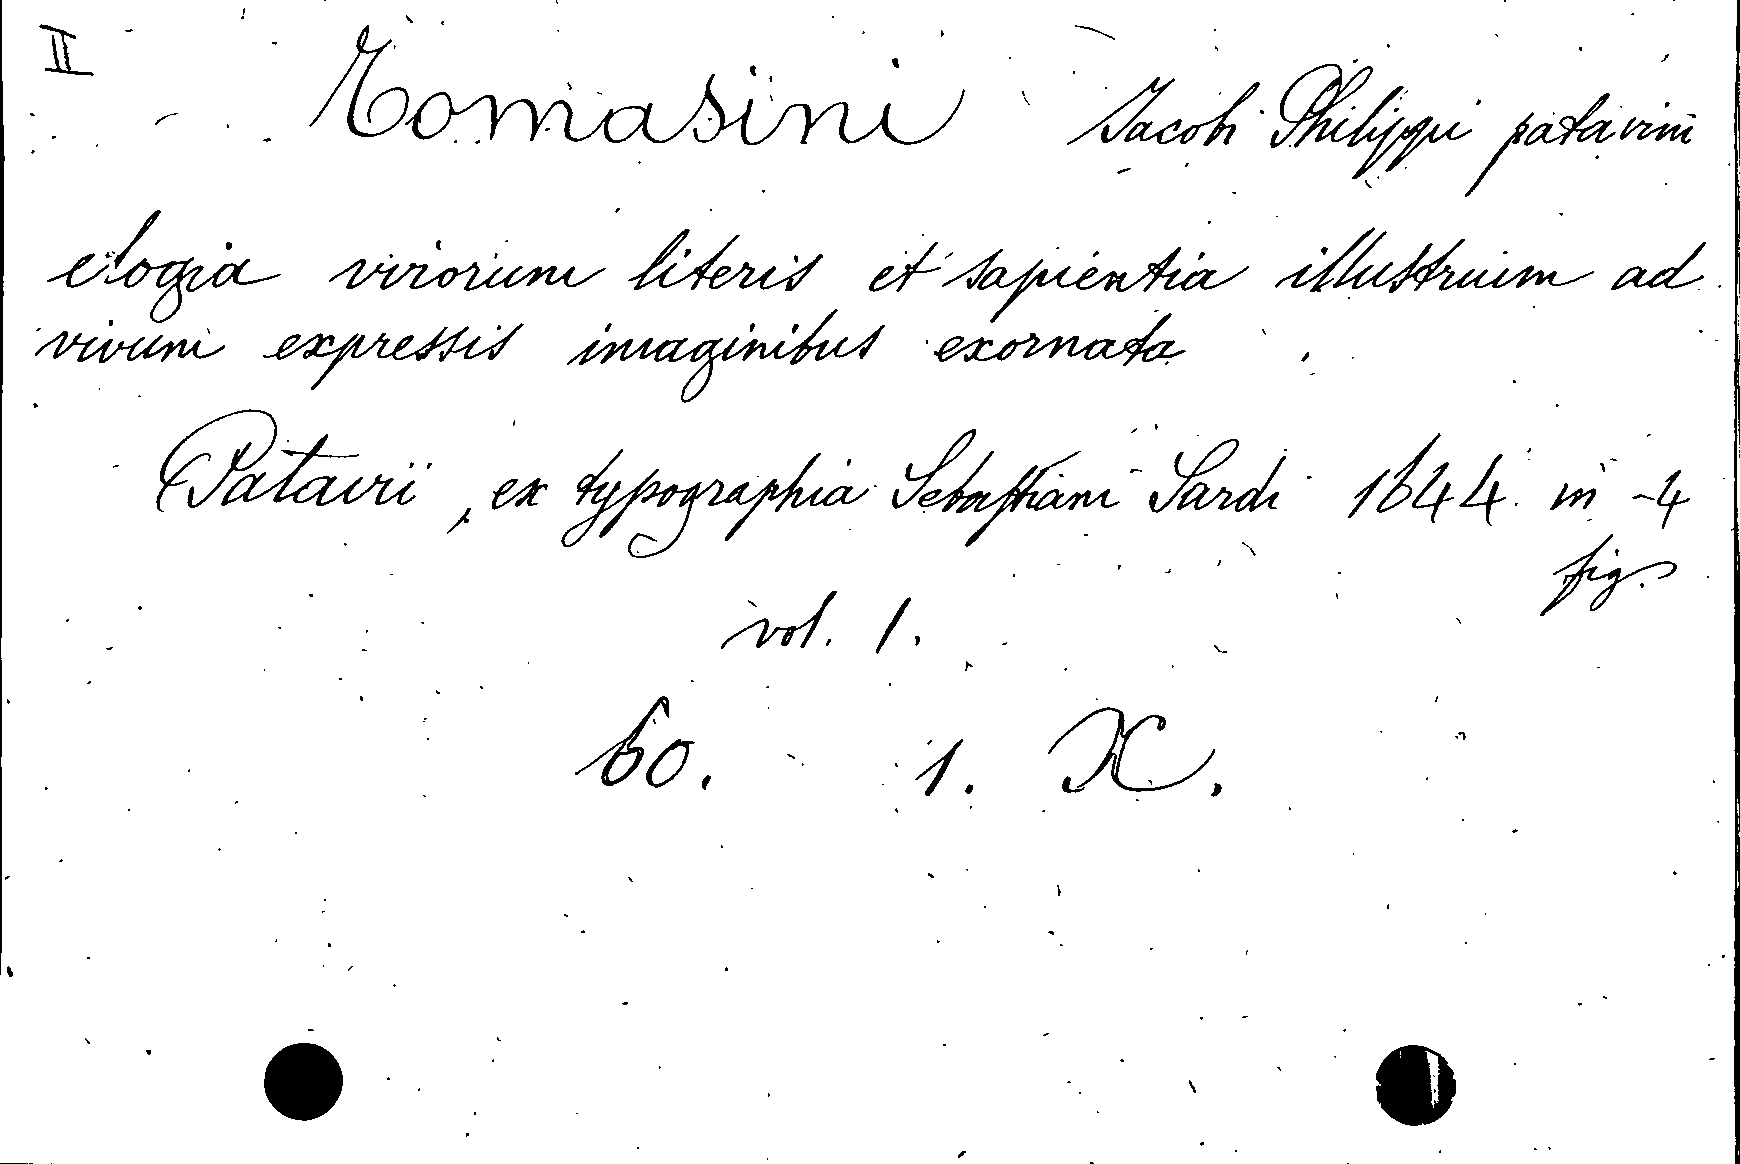 II
Tomasini Jacobi Philippi patavini
elogia virorum literis et sapientia illustrium ad
vivum expressis imaginibus exornata
Patavii, ex typographia Sebastiani Sardi 1644 in-4
fig.
vol. 1.
60. 1. X.